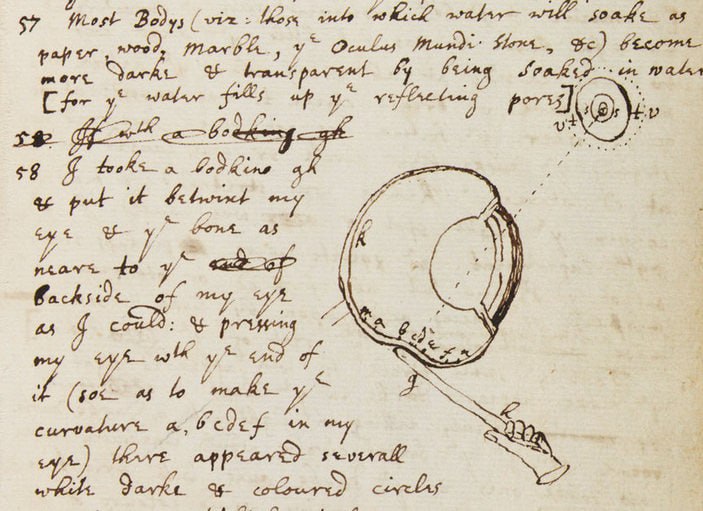 57 Most Bodys (viz: those into which water will soake as
paper, wood, Marble, yᵉ Oculus Mundi stone, &c) become
more darke & transparent by being soaked in water
[for yᵉ water fills up yᵉ reflecting pores]
58 If wth a bodking gh
58 I tooke a bodkine gh
& put it betwixt my
eye & yᵉ bone as
neare to yᵉ end of
backside of my eye
as I could: & pressing
my eye wth yᵉ end of
it (soe as to make yᵉ
curvature a, bcdef in my
eye) there appeared severall
white darke & coloured circles
s s
v t t v
k
m a b c d e f n
g
h